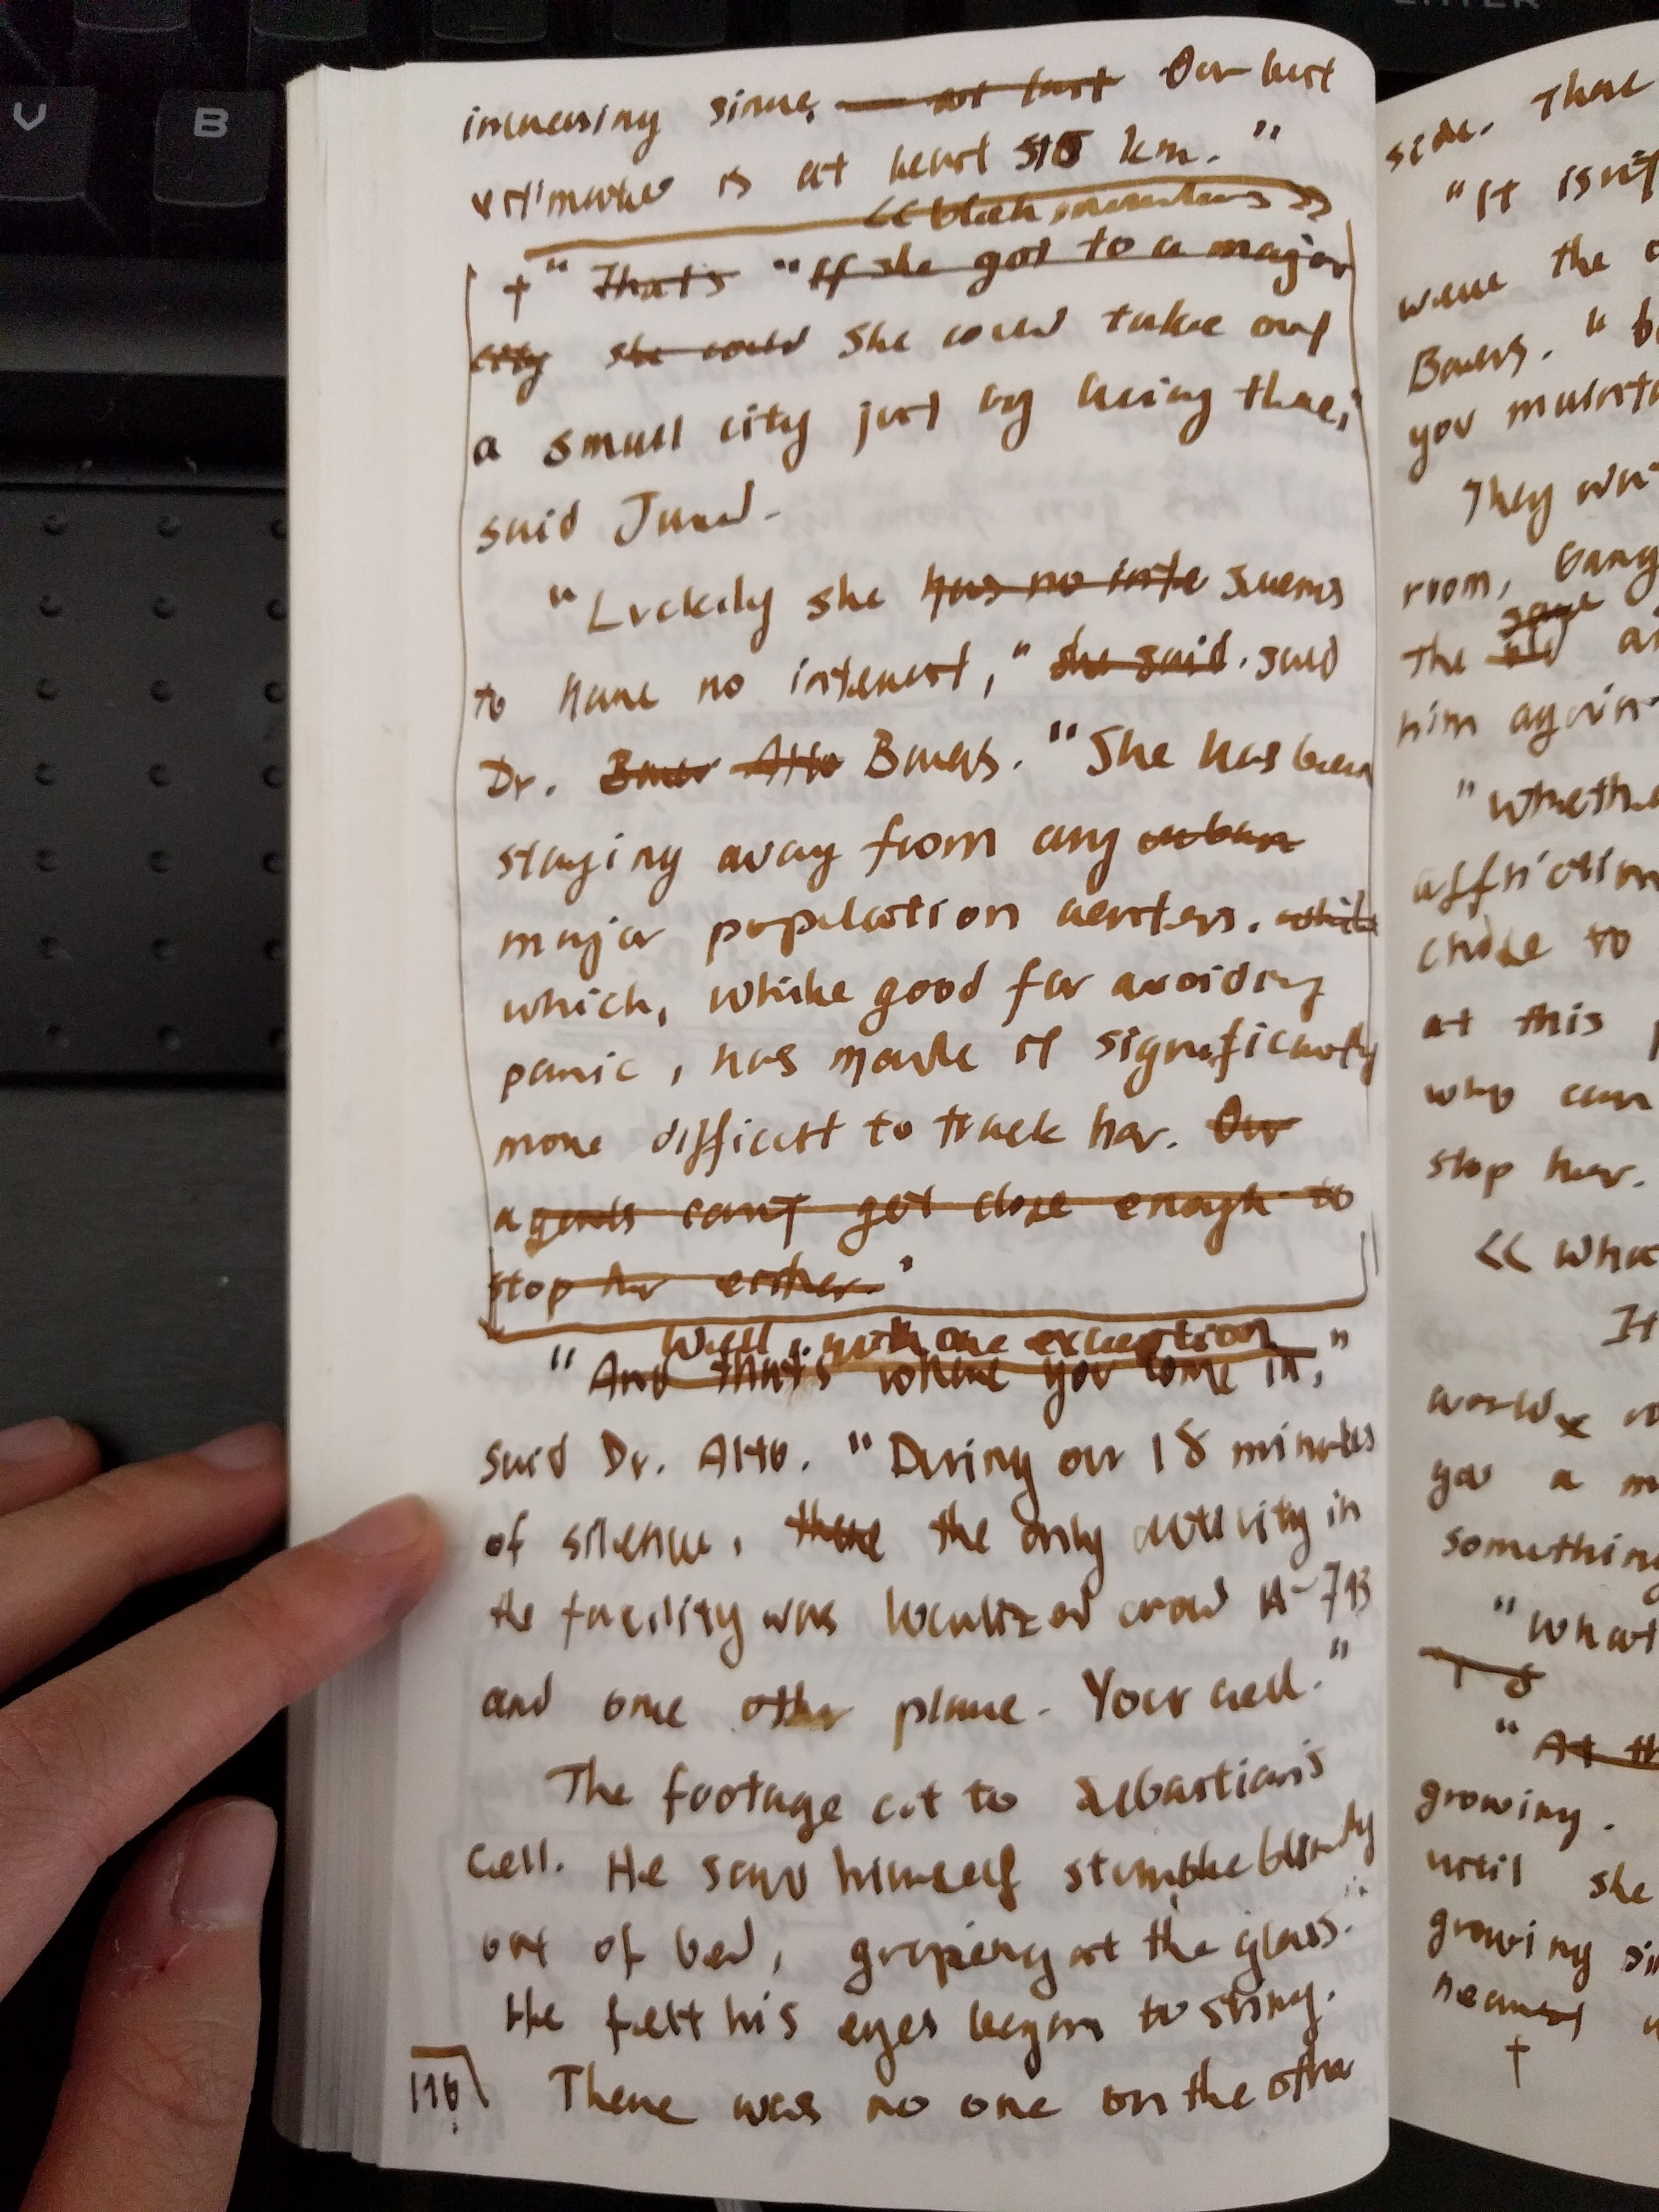 V
B
ENTER
increasing since, — at last Our best
estimate is at least 510 km."
<< black mountains >>
† " That's "If she got to a major
city she could She could take out
a small city just by being there,
said Jared.
"Luckily she has no inte seems
to have no interest," she said. said
Dr. Bower Alto Bowers. "She has been
staying away from any urban
major population centers. while
which, while good for avoiding
panic, has made it significantly
more difficult to track her. Our
agents can't get close enough to
stop her either."
Well, with one exception
"And that's where you come in,"
said Dr. Alto. "During our 18 minutes
of silence, there the only activity in
the facility was localized around A-713
and one other place. Your cell."
The footage cut to Sebastian's
cell. He saw himself stumble blindly
out of bed, groping at the glass.
He felt his eyes began to sting.
116
There was no one on the other
side. There
"It isn't
were the
Bowers. "
you
They
room, bang
same
the old
him again
"Whethe
affliction
chose to
at this
who can
stop her.
<< Wha
It
world
a
something
"What
"At th
growing.
until she
growing
†